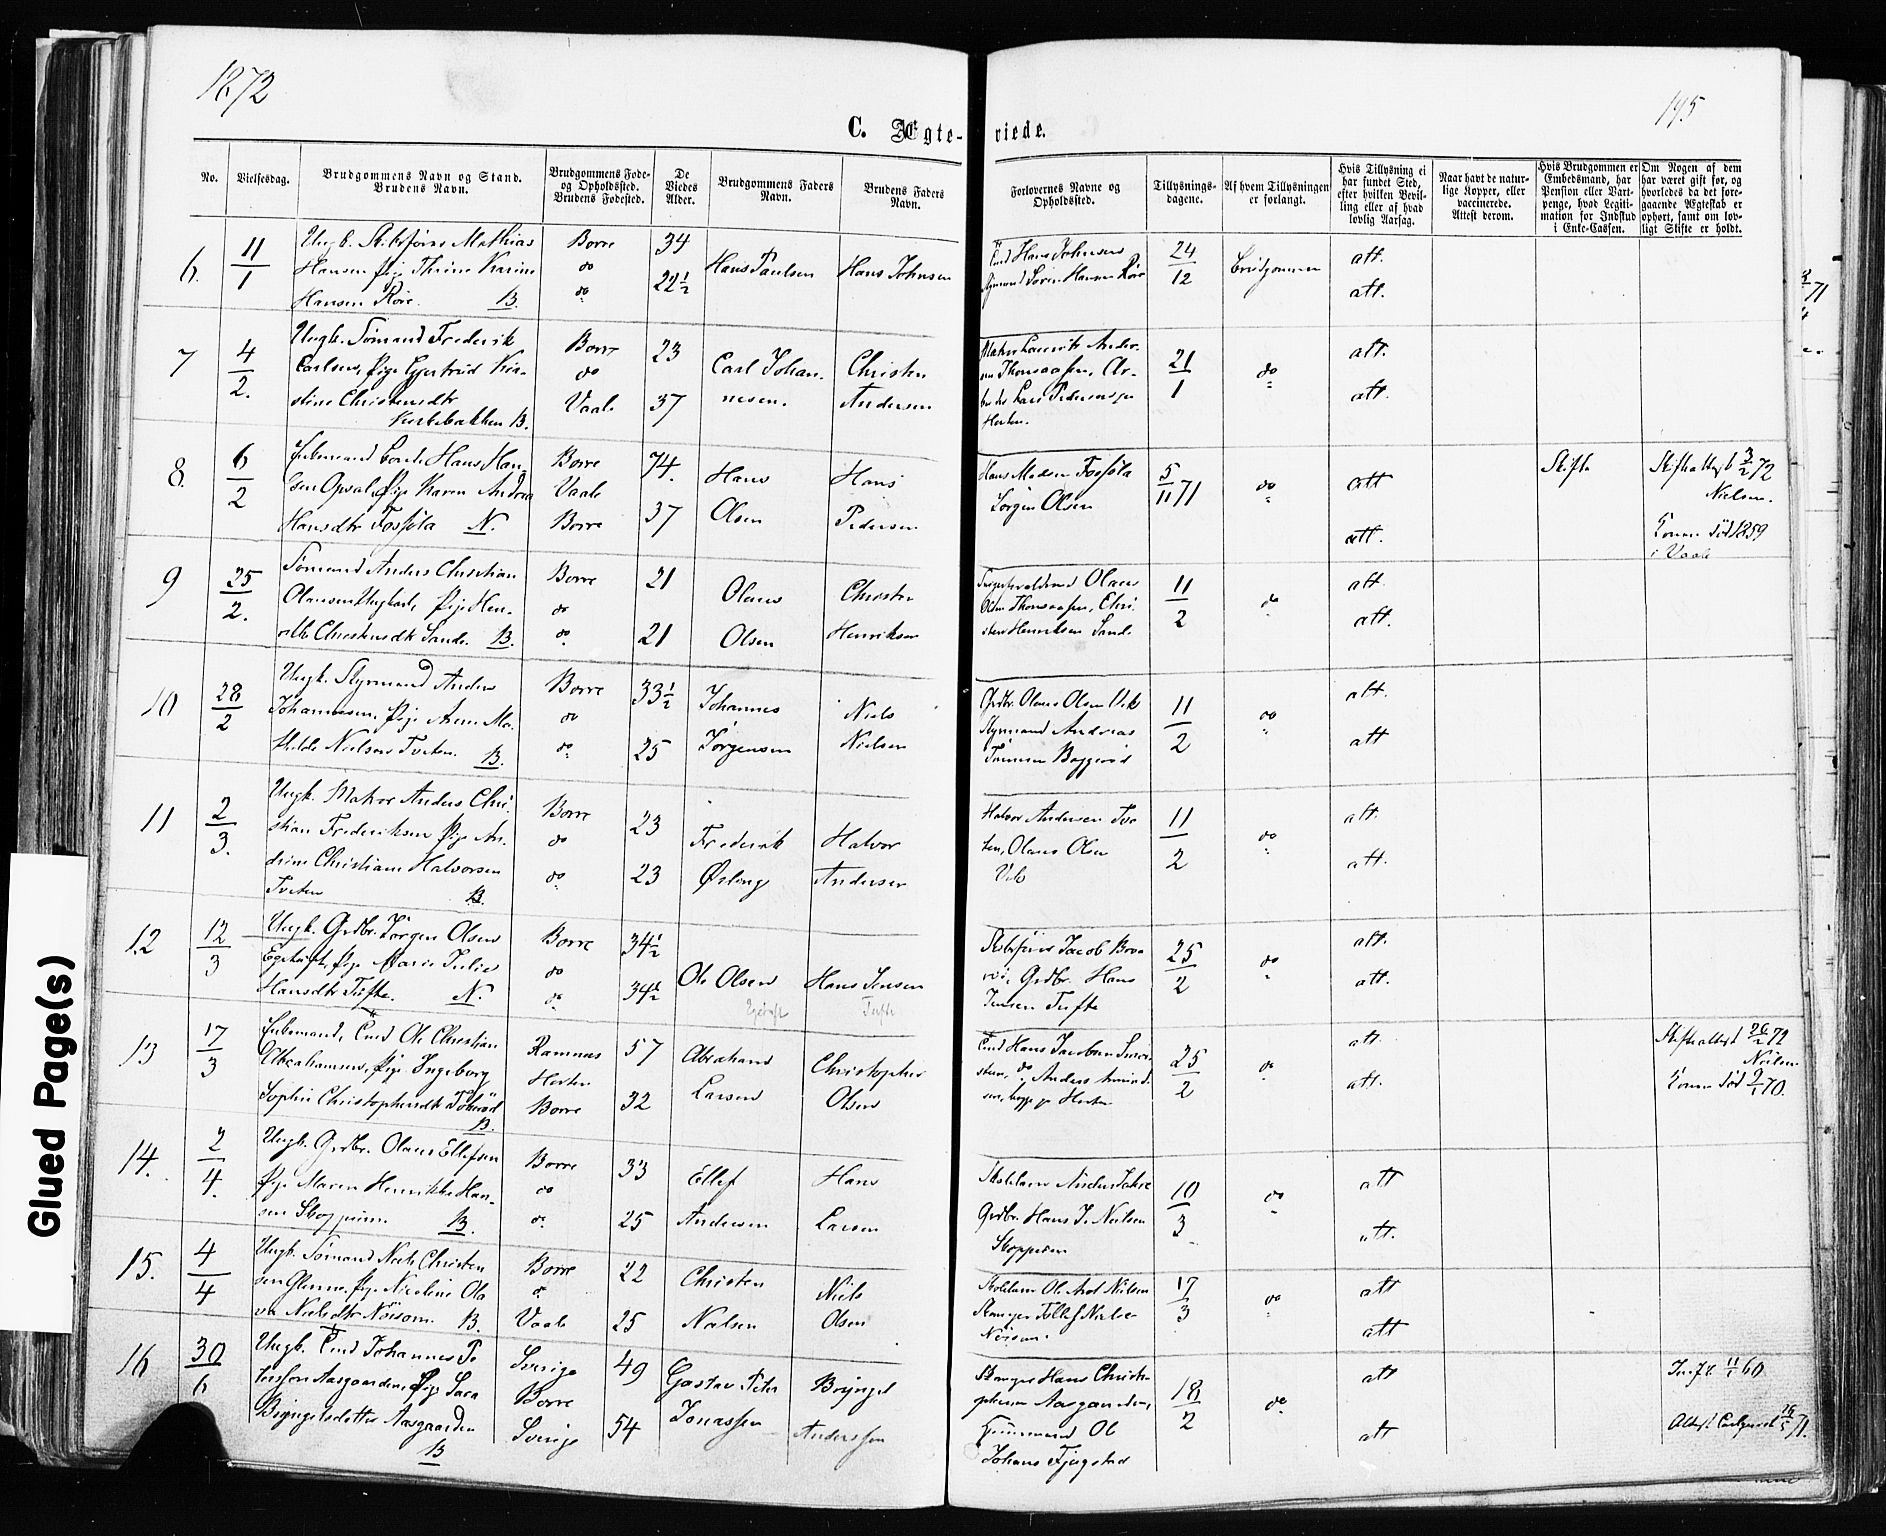 1872
195
C. Ægte-viede.
No.
Vielsesdag.
Brudgommens Navn og Stand.
Brudens Navn.
Brudgommens Føde-
og Opholdssted.
Brudens Fødested.
De
Viedes
Alder.
Brudgommens Faders
Navn.
Brudens Faders
Navn.
Forlovernes Navne og
Opholdssted.
Tillysnings-
dagene.
Af hvem Tillysningen
er forlangt.
Hvis Tillysning ei
har fundet Sted,
efter hvilken Bevil-
ling eller af hvad
lovlig Aarsag.
Naar havt de natur-
lige Kopper, eller
vaccinerede.
Attest derom.
Hvis Brudgommen er
Embedsmand, har
Pension eller Vart-
penge, hvad Legiti-
mation for Indskud
i Enke-Cassen.
Om Nogen af dem
har været gift før, og
hvorledes da det fore-
gaaende Ægteskab er
ophørt, samt om lov-
ligt Skifte er holdt.
6. 11/1 Ungk. Skibsfører Mathias Borre 34
Hansen Pige Thrine Karine do 22½ Hans Paulsen Hans Johnsen
Hansen Røre. B. do
Hans Johnsen 24/12 Brudgommen att.
Søren Hansen Røre att.
7 4/2. Ungk. Sømand Frederik Borre 23
Carlsen, Pige Gjertrud Kir- do Carl Johan- Christen
stine Christensdtr Vaale 37 nesen. Andersen
Kirkebakken B.
21/1 do att.
Lars Pedersen att.
Horten.
8. 6/2 Enkemand Hans Han- Borre 74.
sen Opsal, Pige Karen Andrea Vaale Hans Hans
Hansdtr Fossøla N. Borre 37 Olsen Pedersen
Hans Madsen Fossøla 5/11 71 do att Skifte Skifteattest 3/2 72
Jørgen Olsen Nielsen.
att. Konen død 1859
i Vaale
9 25/2. Sømand Anders Christian Borre 21
Olausen Ungkarl, Pige Hen- do Olaus Christen
Christensdtr Sande. B. do 21 Olsen Henriksen
Olaus 11/2 do att
Olsen Christen Henriksen Sande att.
10 28/2 Ungk. Styrmand Anders Borre 33½
Johannesen, Pige Anne Ma- do Johannes Niels
thilde Nielsen Tveten. B. do 25 Jørgensen Nielsen
Grdbr. Olaus Olsen Vik 11/2 do att.
Styrmand Andreas att
11 2/3. Ungk. Matros Anders Chri- Borre
stian Frederiksen Pige An- do 23 Frederik Halvor
drine Christiane Halvorsen do 23 Østing Andersen
Tveten B.
Halvor Andersen Tve- 11/2 do att.
ten, Olaus Olsen att.
Vik
12 12/3 Ungk. Grdbr. Jørgen Olsen Borre 34½
Pige Maren Julie do Ole Olsen Hans Jensen
Hansdtr Tufte. N. do 34½ Tufte
Skibsfører Jacob 25/2 do att.
Grdbr. Hans att.
Jensen Tufte
13 17/3 Enkemand, Ole Christian Ramnæs 57 Abraham
Abrahamsen, Pige Ingeborg Horten Christopher
Sophie Christophersdtr Borre 32 Larsen Olsen
B.
Hans Jacobsen 25/2 do att. Skifteattest 26/2 72
Anders att. Nielsen
Horten Konen død 9/1 70.
14. 2/4. Ungk. Grdbr. Olaus Ellefsen Borre 33
Pige Maren Henrikke Han- do Ellef Hans
sen Skoppum. B. do 25 Andersen Larsen
10/3 do att
Grdbr. Hans J. Nielsen att.
Skoppum
15. 4/4 Ungk. Sømand Niels Christen- Borre 22 Christen
sen Glenne, Pige Nicoline Ola- do Niels
va Nielsdtr Nøisom. B. Vaale 25 Nielsen Olsen
17/3 do att
Nøisom. att
16 30/6 Ungk. Johannes Pe- Sverige 49 Gustav Peter
tersson Aasgaarden, Pige Sara Borre Bryngel
Bryngelsdotter Aasgaarden Sverige 54 Jonassen Anderssen
B
Hans Christo- 18/2 do att 11/1 60
phersen Aasgaarden,
Ole att 26/5 71.
Johans Fjugstad
Glued Page(s)